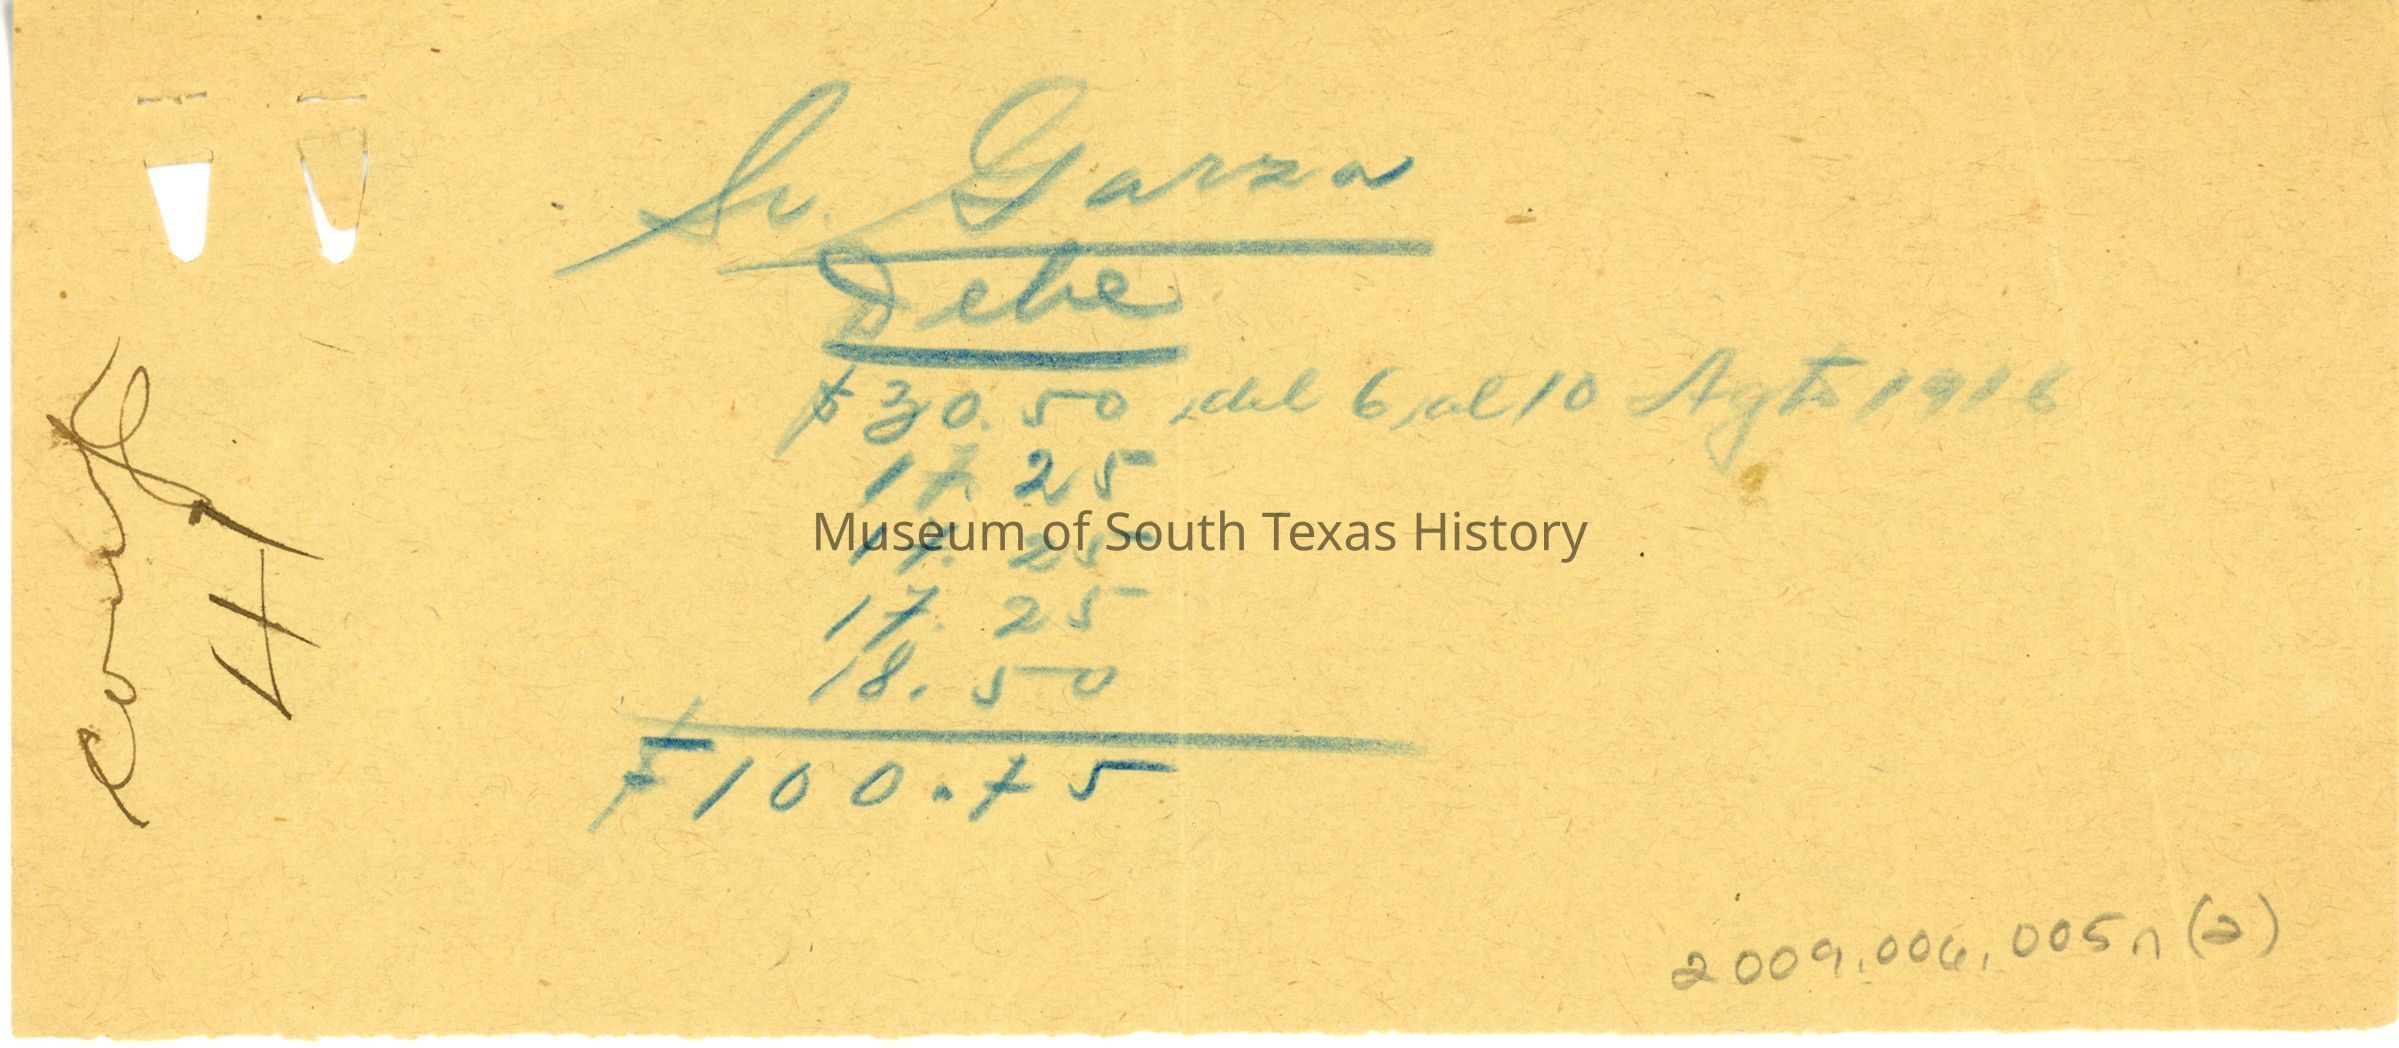 Sr. Garza
Debe
$30.50 del 6 al 10 Agto 1916
17.25
17.25
17.25
18.50
$100.75
41
Museum of South Texas History
2009.006.005n(2)